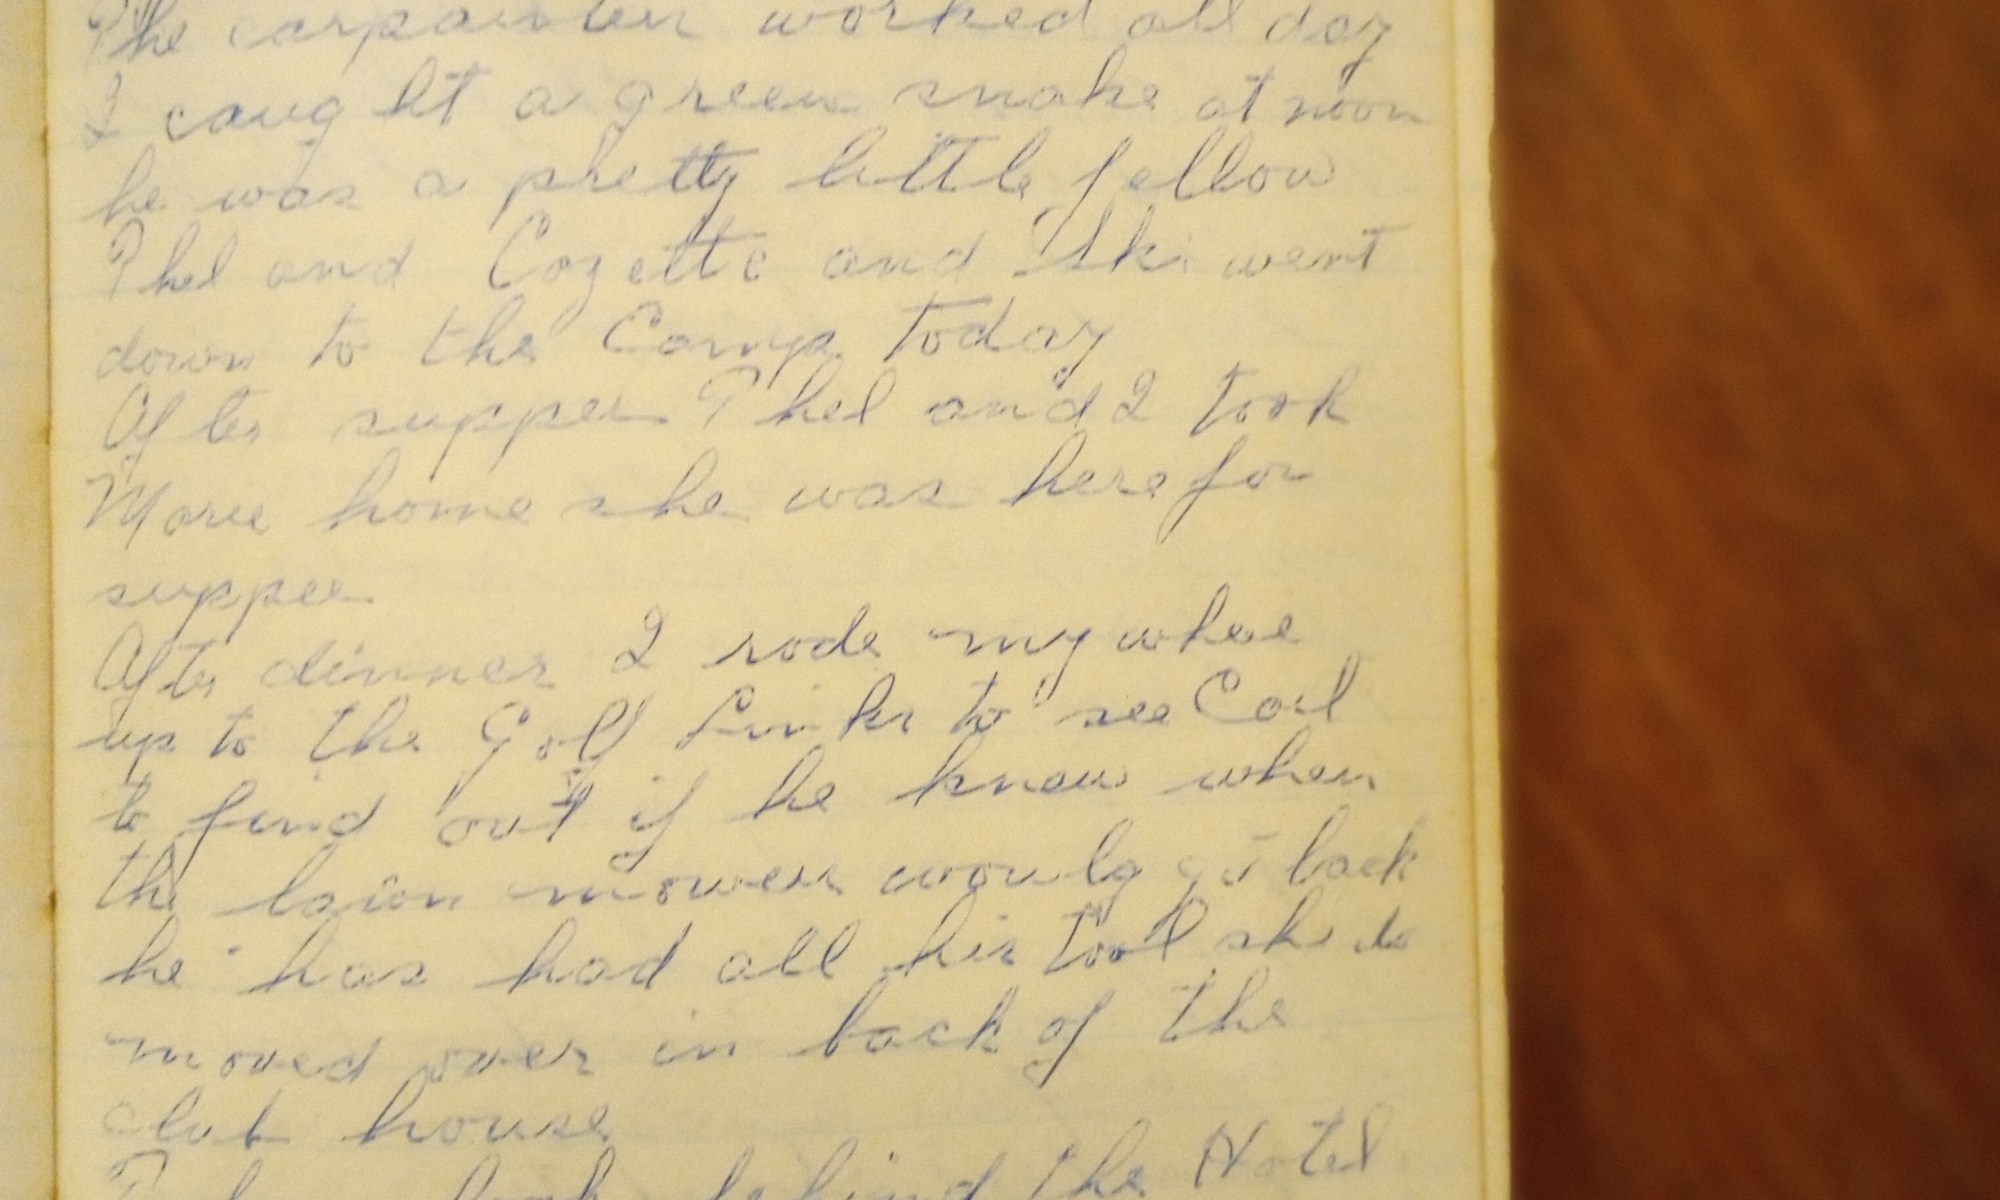 The carpainter worked all day
I caught a green snake at noon
he was a pretty little fellow
Phel and Cozette and Ski went
down to the Camp today
After supper Phel and I took
Marie home she was here for
supper
After dinner I rode my whee
up to the Golf Links to see Carl
to find out if he knew when
the lawn mower would go back
he has had all his tool sheds
moved over in back of the
club house
back behind the Hotel